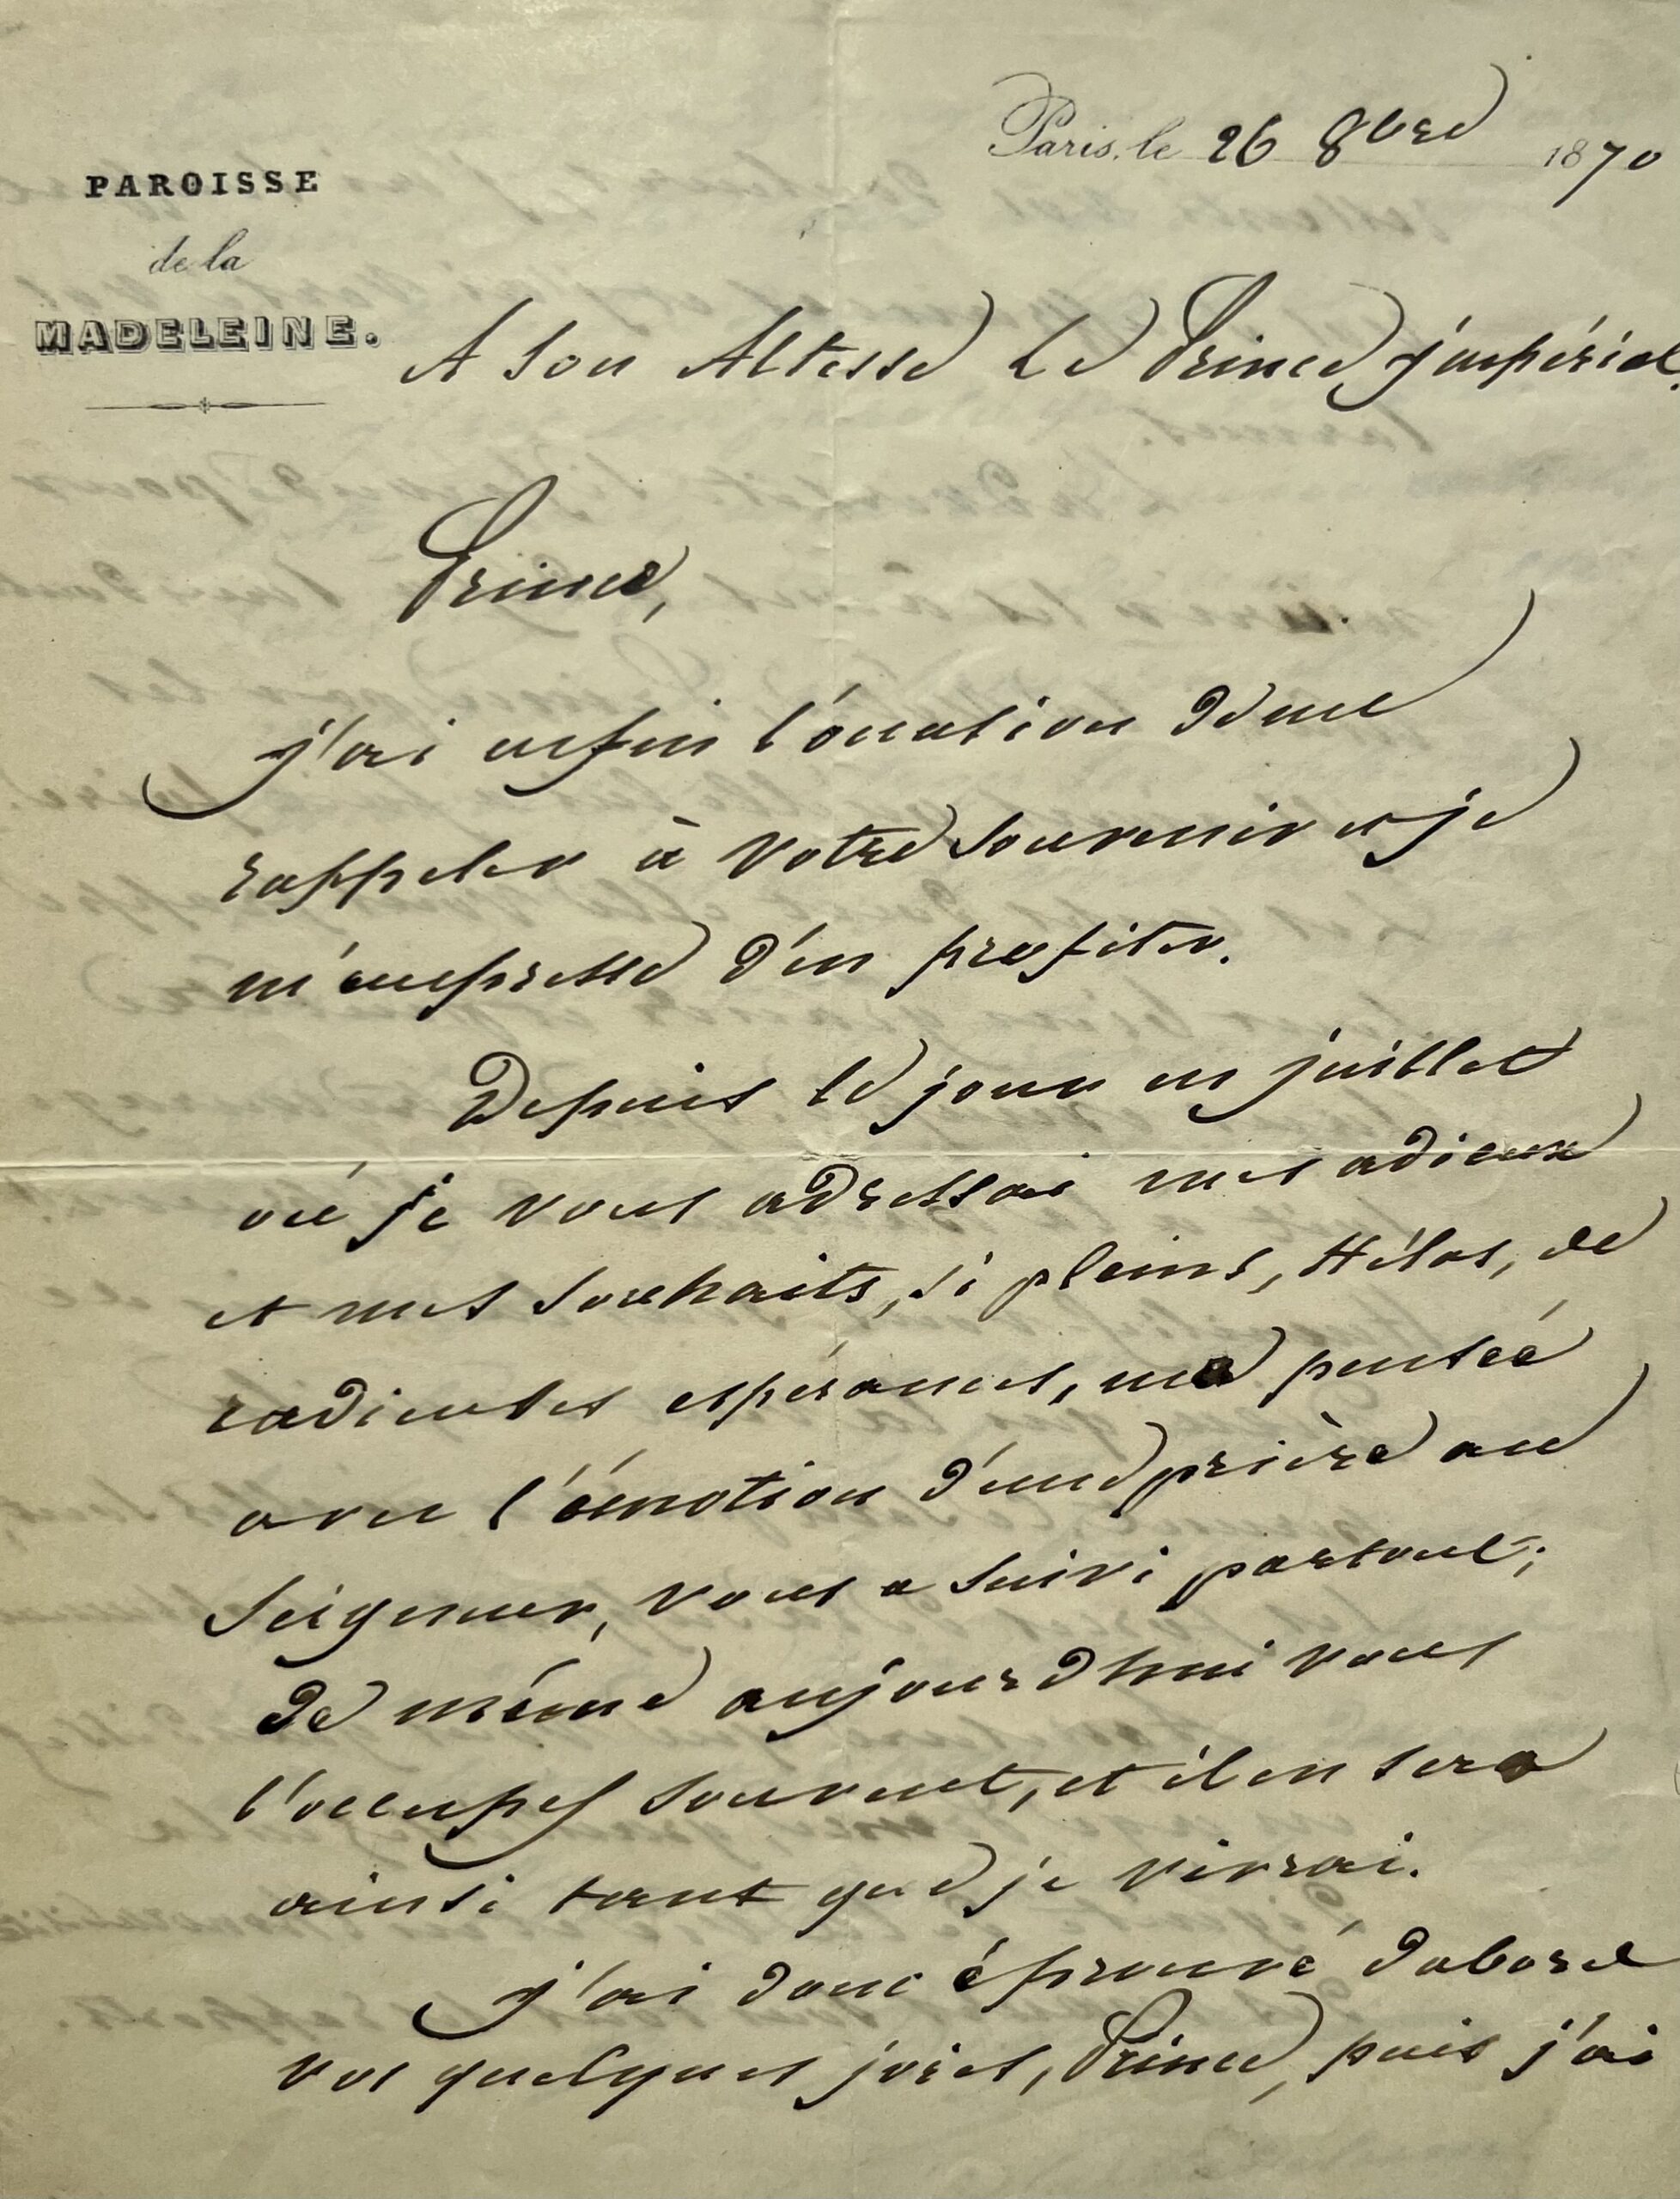 Paris, le 26 8bre 1870
PAROISSE
de la
MADELEINE.
A Son Altesse Le Prince jmpérial.
Prince,
j'ai enfin l'ocation de me
rappeler à votre souvenir et je
m'empresse d'en profiter.
Depuis le jour en juillet
où je vous adressai mes adieux
et mes souhaits, si pleins, Hélas, de
radieuses espérances, ma pensée
avec l'émotion d'une prière au
Seigneur, vous a suivi partout;
de même aujourd'hui vous
l'occupez souvent, et il en sera
ainsi tant que je vivrai.
j'ai donc éprouvé dabord
vos quelques joies, Prince, puis j'ai